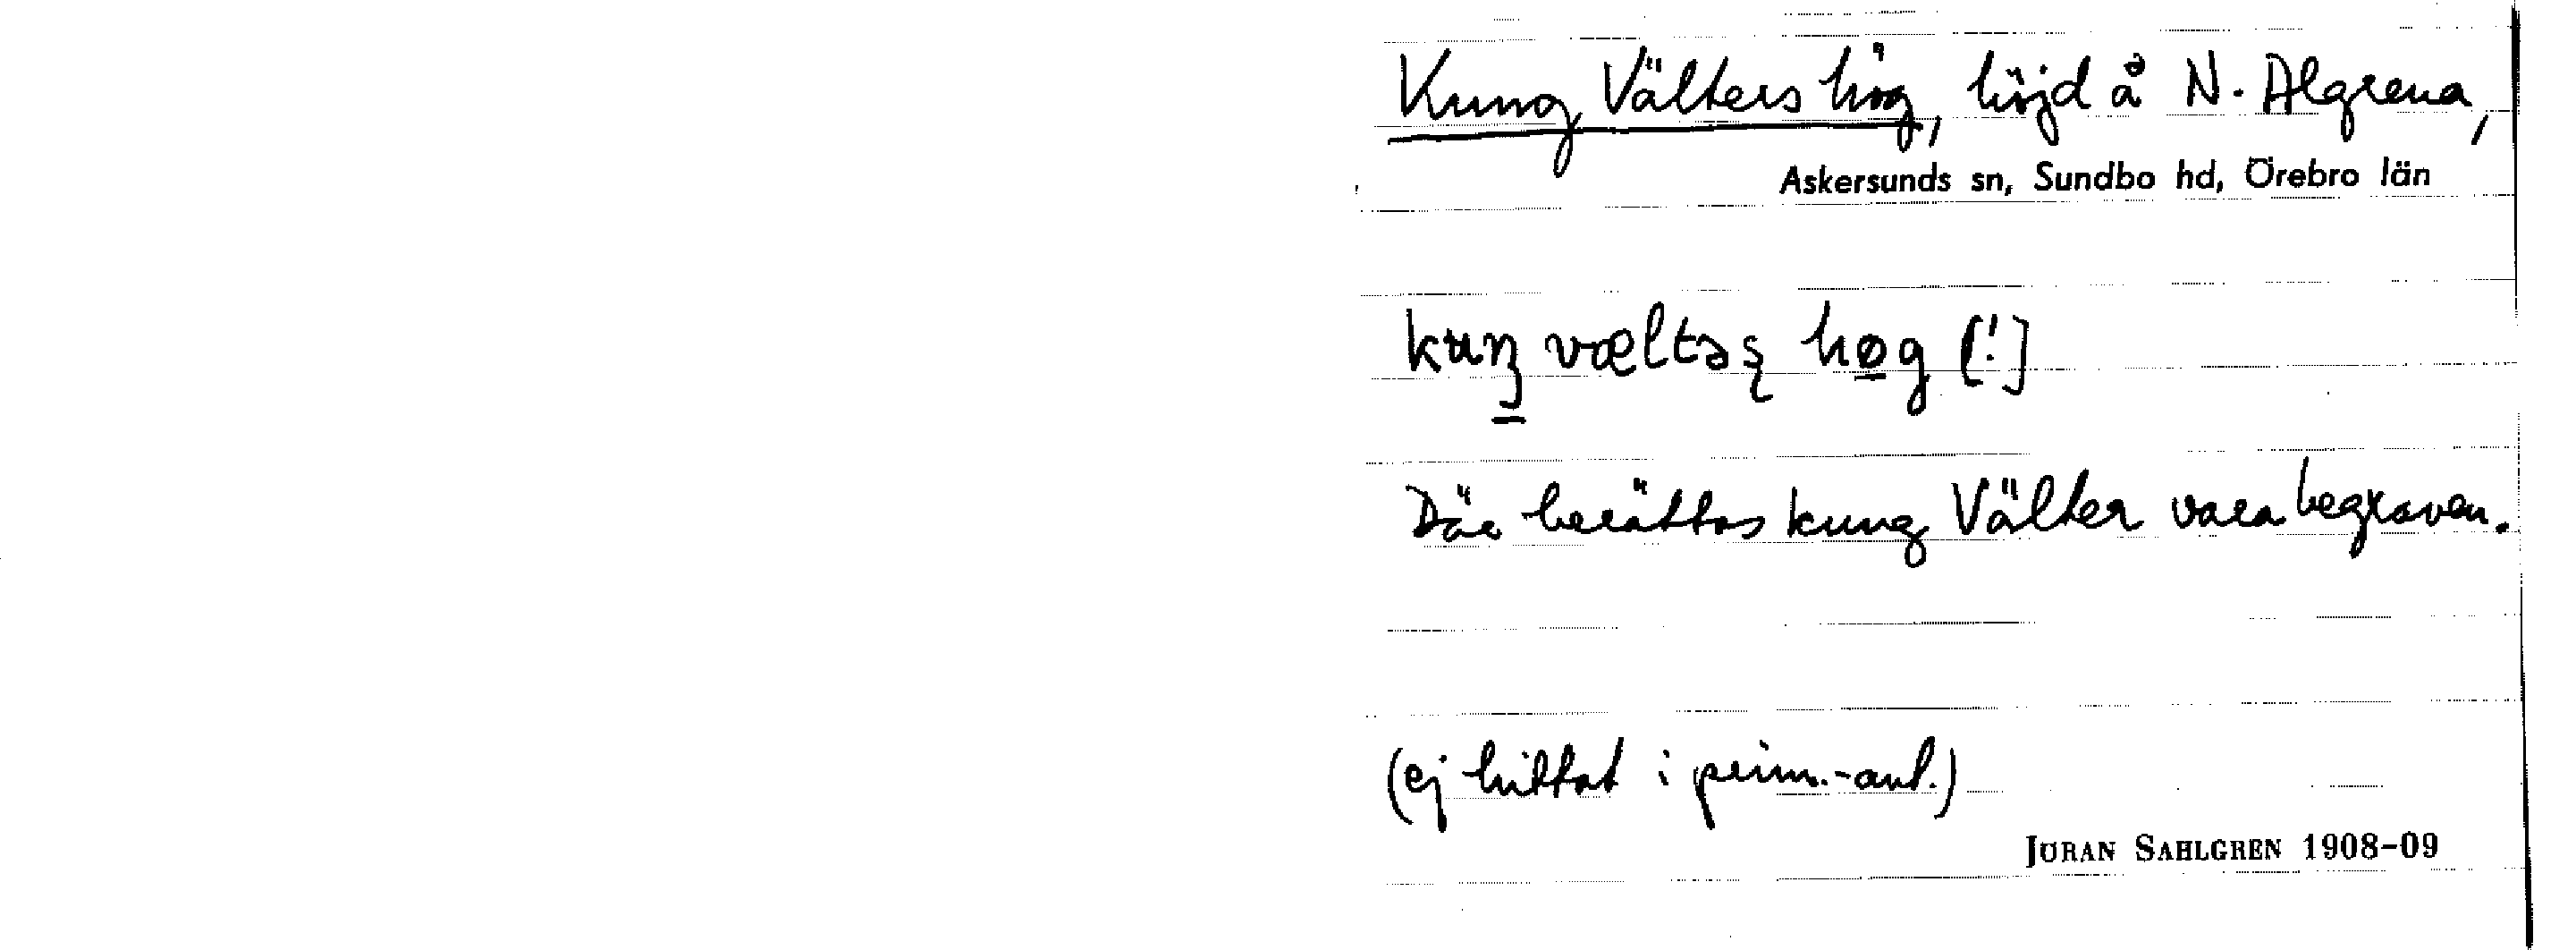 Kung Välters hög, höjd å N. Algrena,
Askersunds sn, Sundbo hd, Örebro län
kuŋ væltəʂ høg [!]
Där berättas kung Välter vara begraven.
(ej hittat i prim.-ant.)
JÖRAN SAHLGREN 1908-09